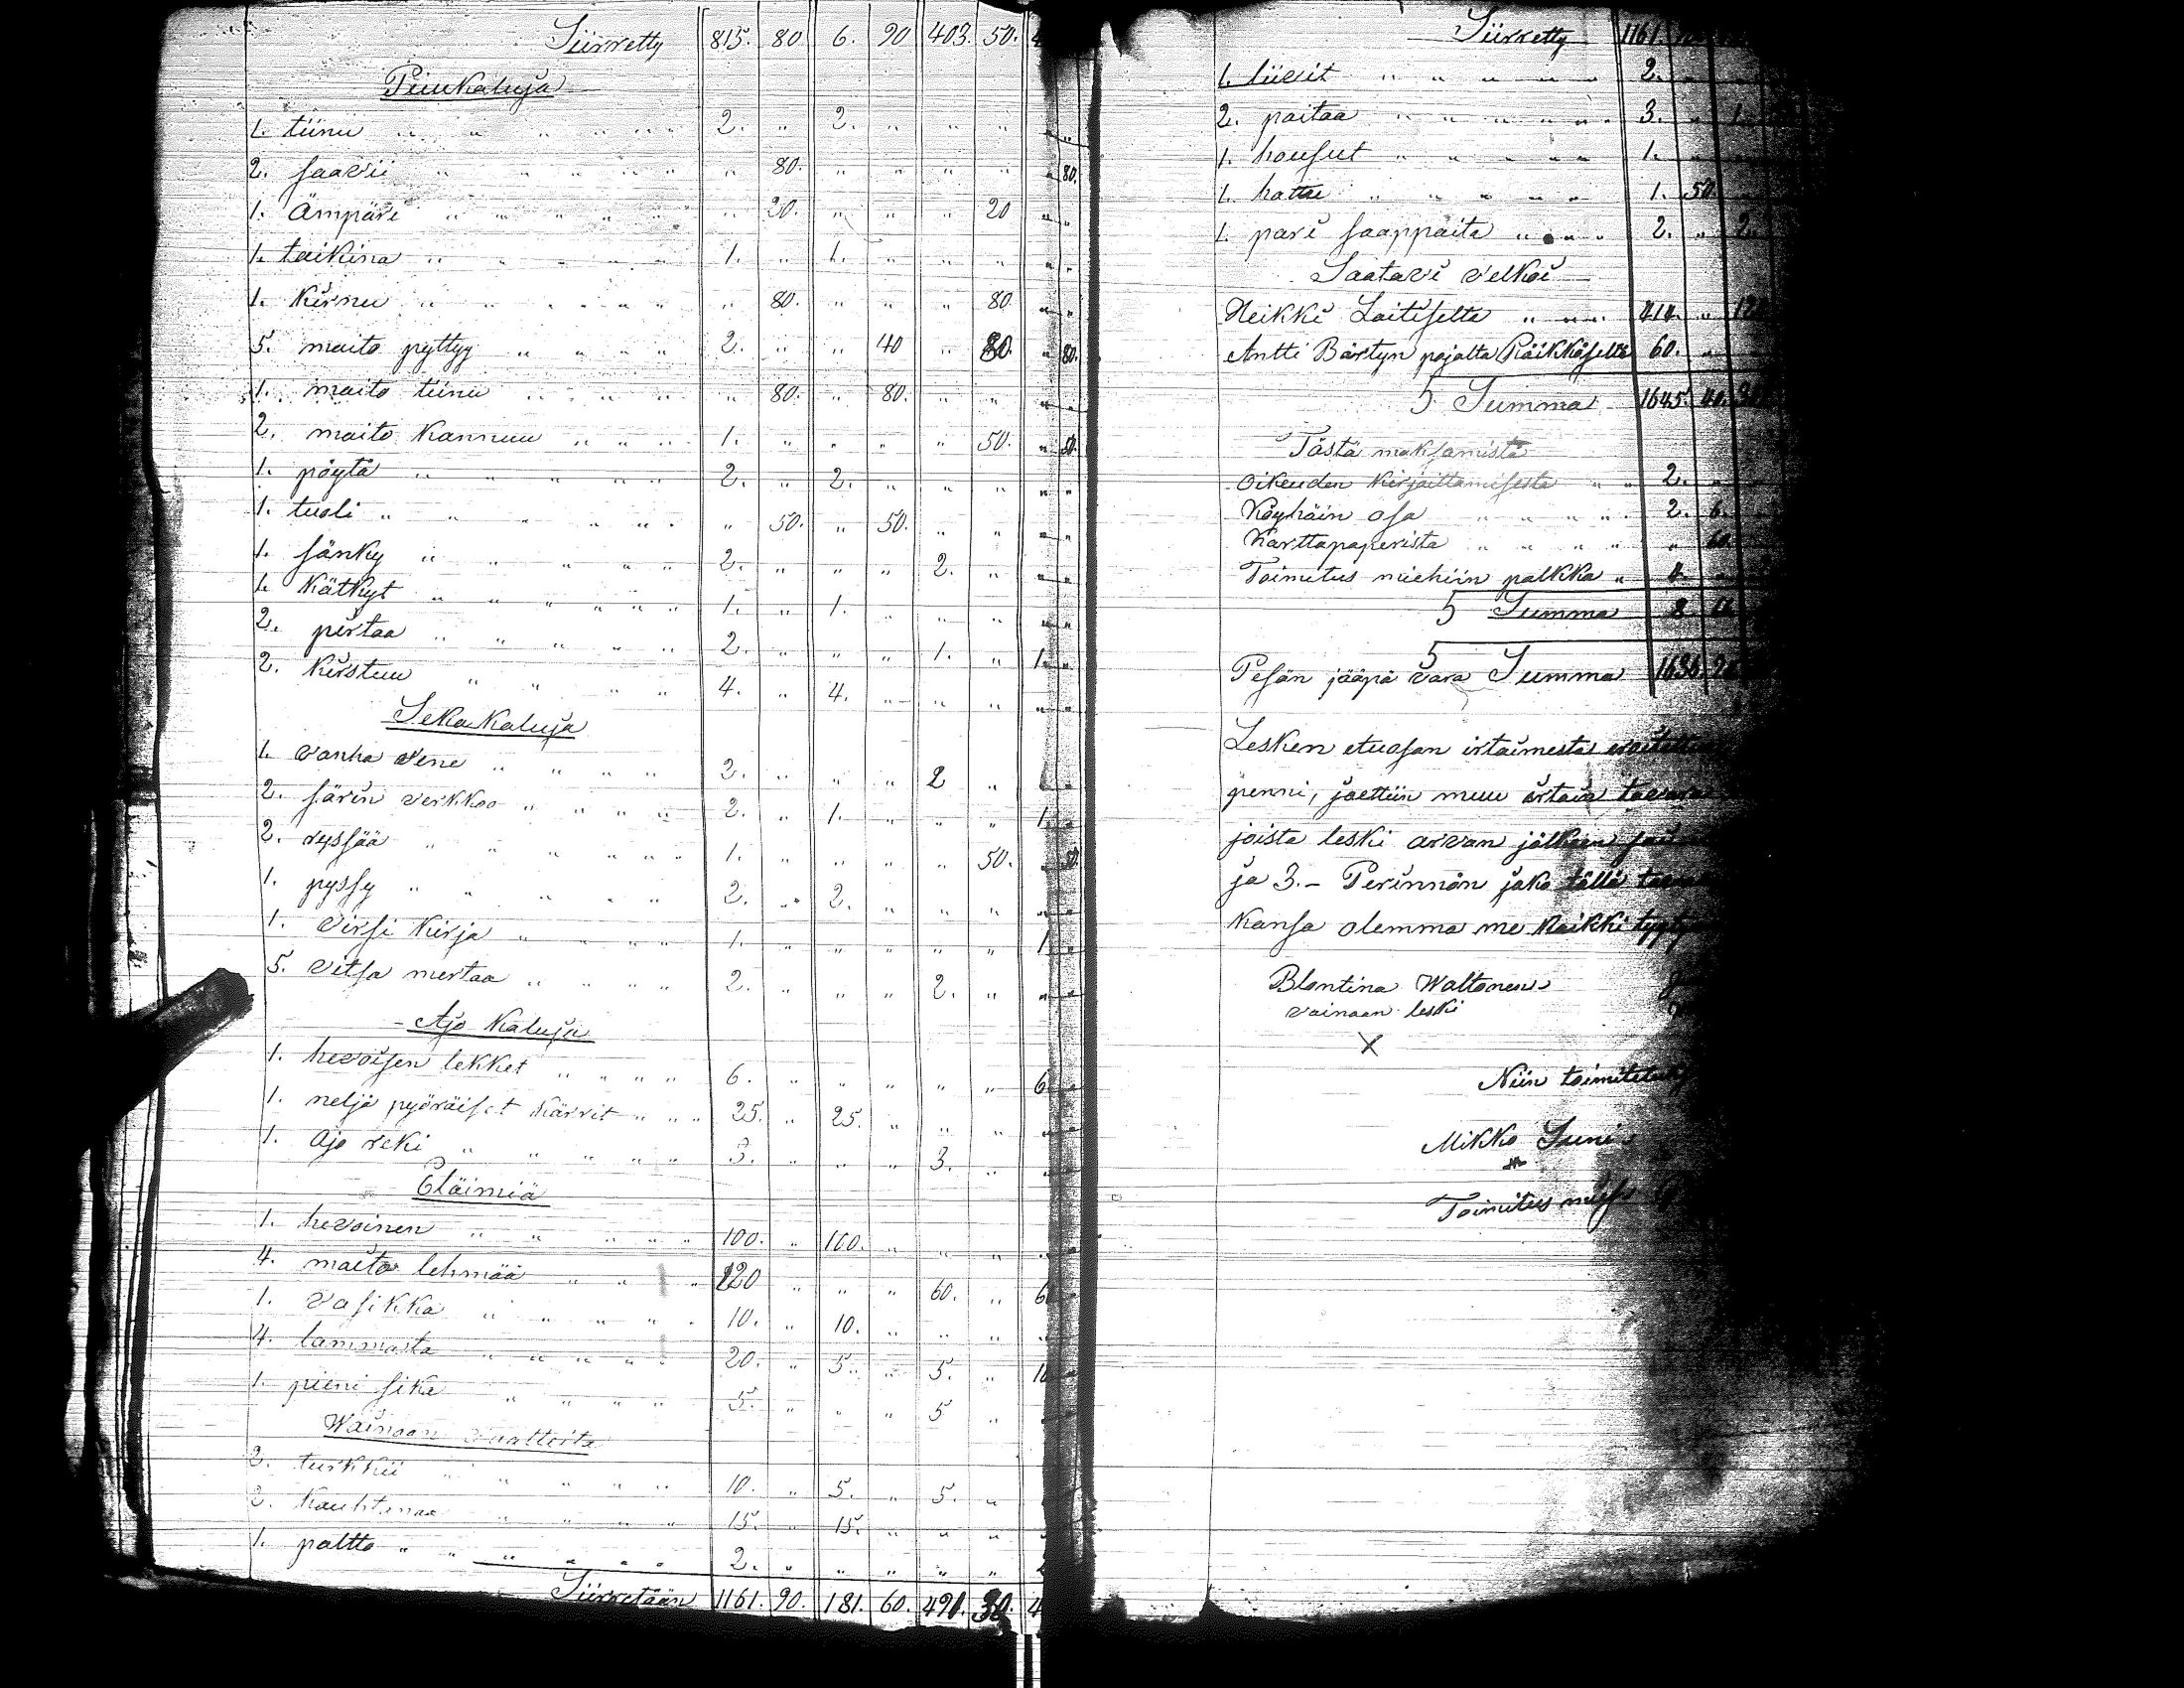 Siirretty 815. 80 6. 90 403. 50. 4
Puukaluja
1. tiinu " " " " " " 2. " 2. " " " " "
2. saavii " " " " " " " 80. " " " " " 80.
1. Ämpäri " " " " " " " 20. " " " 20 " "
1. taikina " " " " " " 1. " 1. " " " " "
1. Kirnu " " " " " " " 80. " " " 80 " "
5. maito pyttyy " " " " 2. " " 40 " 80. " 80.
1. maito tiinu " " " " " 80. " 80. " " " "
2. maito Kannuu " " " 1. " " " " 50. " 50.
1. pöytä " " " " " " 2. " 2. " " " " "
1. tuoli " " " " " " " 50. " 50. " " " "
1. sänky " " " " " 2. " " " 2. " " "
1. Kätkyt " " " " " " 1. " 1. " " " " "
2. pirtaa " " " " " 2. " " " 1. " 1. "
2. Kirstuu " " " " 4. " 4. " " " " "
Sekakaluja
1. vanha vene " " " " 2. " " " 2 "
2. särin verkkoo " " " " 2. " 1. " " " 1. "
2. ryssää " " " " " " 1. " " " " 50. " 50.
1. pyssy " " " " " 2. " 2. " " " " "
1. Virsi Kirja " " " " 1. " " " " " 1. "
5. vitsa mertaa " " " " 2. " " " 2. " " "
Ajo Kaluja
1. hevoisen lekket " " " " 6. " " " " " 6 "
1. neljä pyöräiset Kärrit " " " 25. " 25. " " " " "
1. Ajo reki " " " " " 3. " " " 3. " " "
Eläimiä
1. hevoinen " " " " " 100. " 100. " " " "
4. maito lehmää " " " 120 " " " 60. " 6
1. Vasikka " " " " " 10. " 10. " " " "
4. lammasta " " " " " 20. " 5. " 5. " 10
1. pieni sika " " " " 5. " " " 5 "
Wainaan vaatteita
2. turkkii " " " " " 10. " 5. " 5. "
2. Kauhtanaa " " " " 15. " 15. " " "
1. paltto " " " " " " 2. " " " " "
Siirretään 1161. 90. 181. 60. 491. 30. 4
Siirretty 1161.
1. liivit " " " " " " 2. "
2. paitaa " " " " " " 3. " 1.
1. housut " " " " " 1. "
1. hattu " " " " " 1. 50.
1. pari saappaita " " " " 2. " 2.
Saatavi velkoi
Heikki Laitiselta " " " 414. "
Antti Bärtyn pojalta Räikkäseltä 60. "
Summa 1645. 40.
Tästä maksamista
Oikeuden Kirjoittamisesta " " 2. "
Köyhäin osa " " " " " 2. 6.
Karttapaperista " " " " " 60.
Toimitus miehiin palkka " 4. "
Summa 8.
Pesän jääpä vara Summa 1636.
Lesken etuosan irtaimesta
penni, jaettiin muu
joista leski arvan jälkeen
ja 3.- Perinnön jako tällä
Kansa olemma me Kaikki
Blontina Waltonen
vainaan leski
X
Niin
Mikko Suni
Toimitus